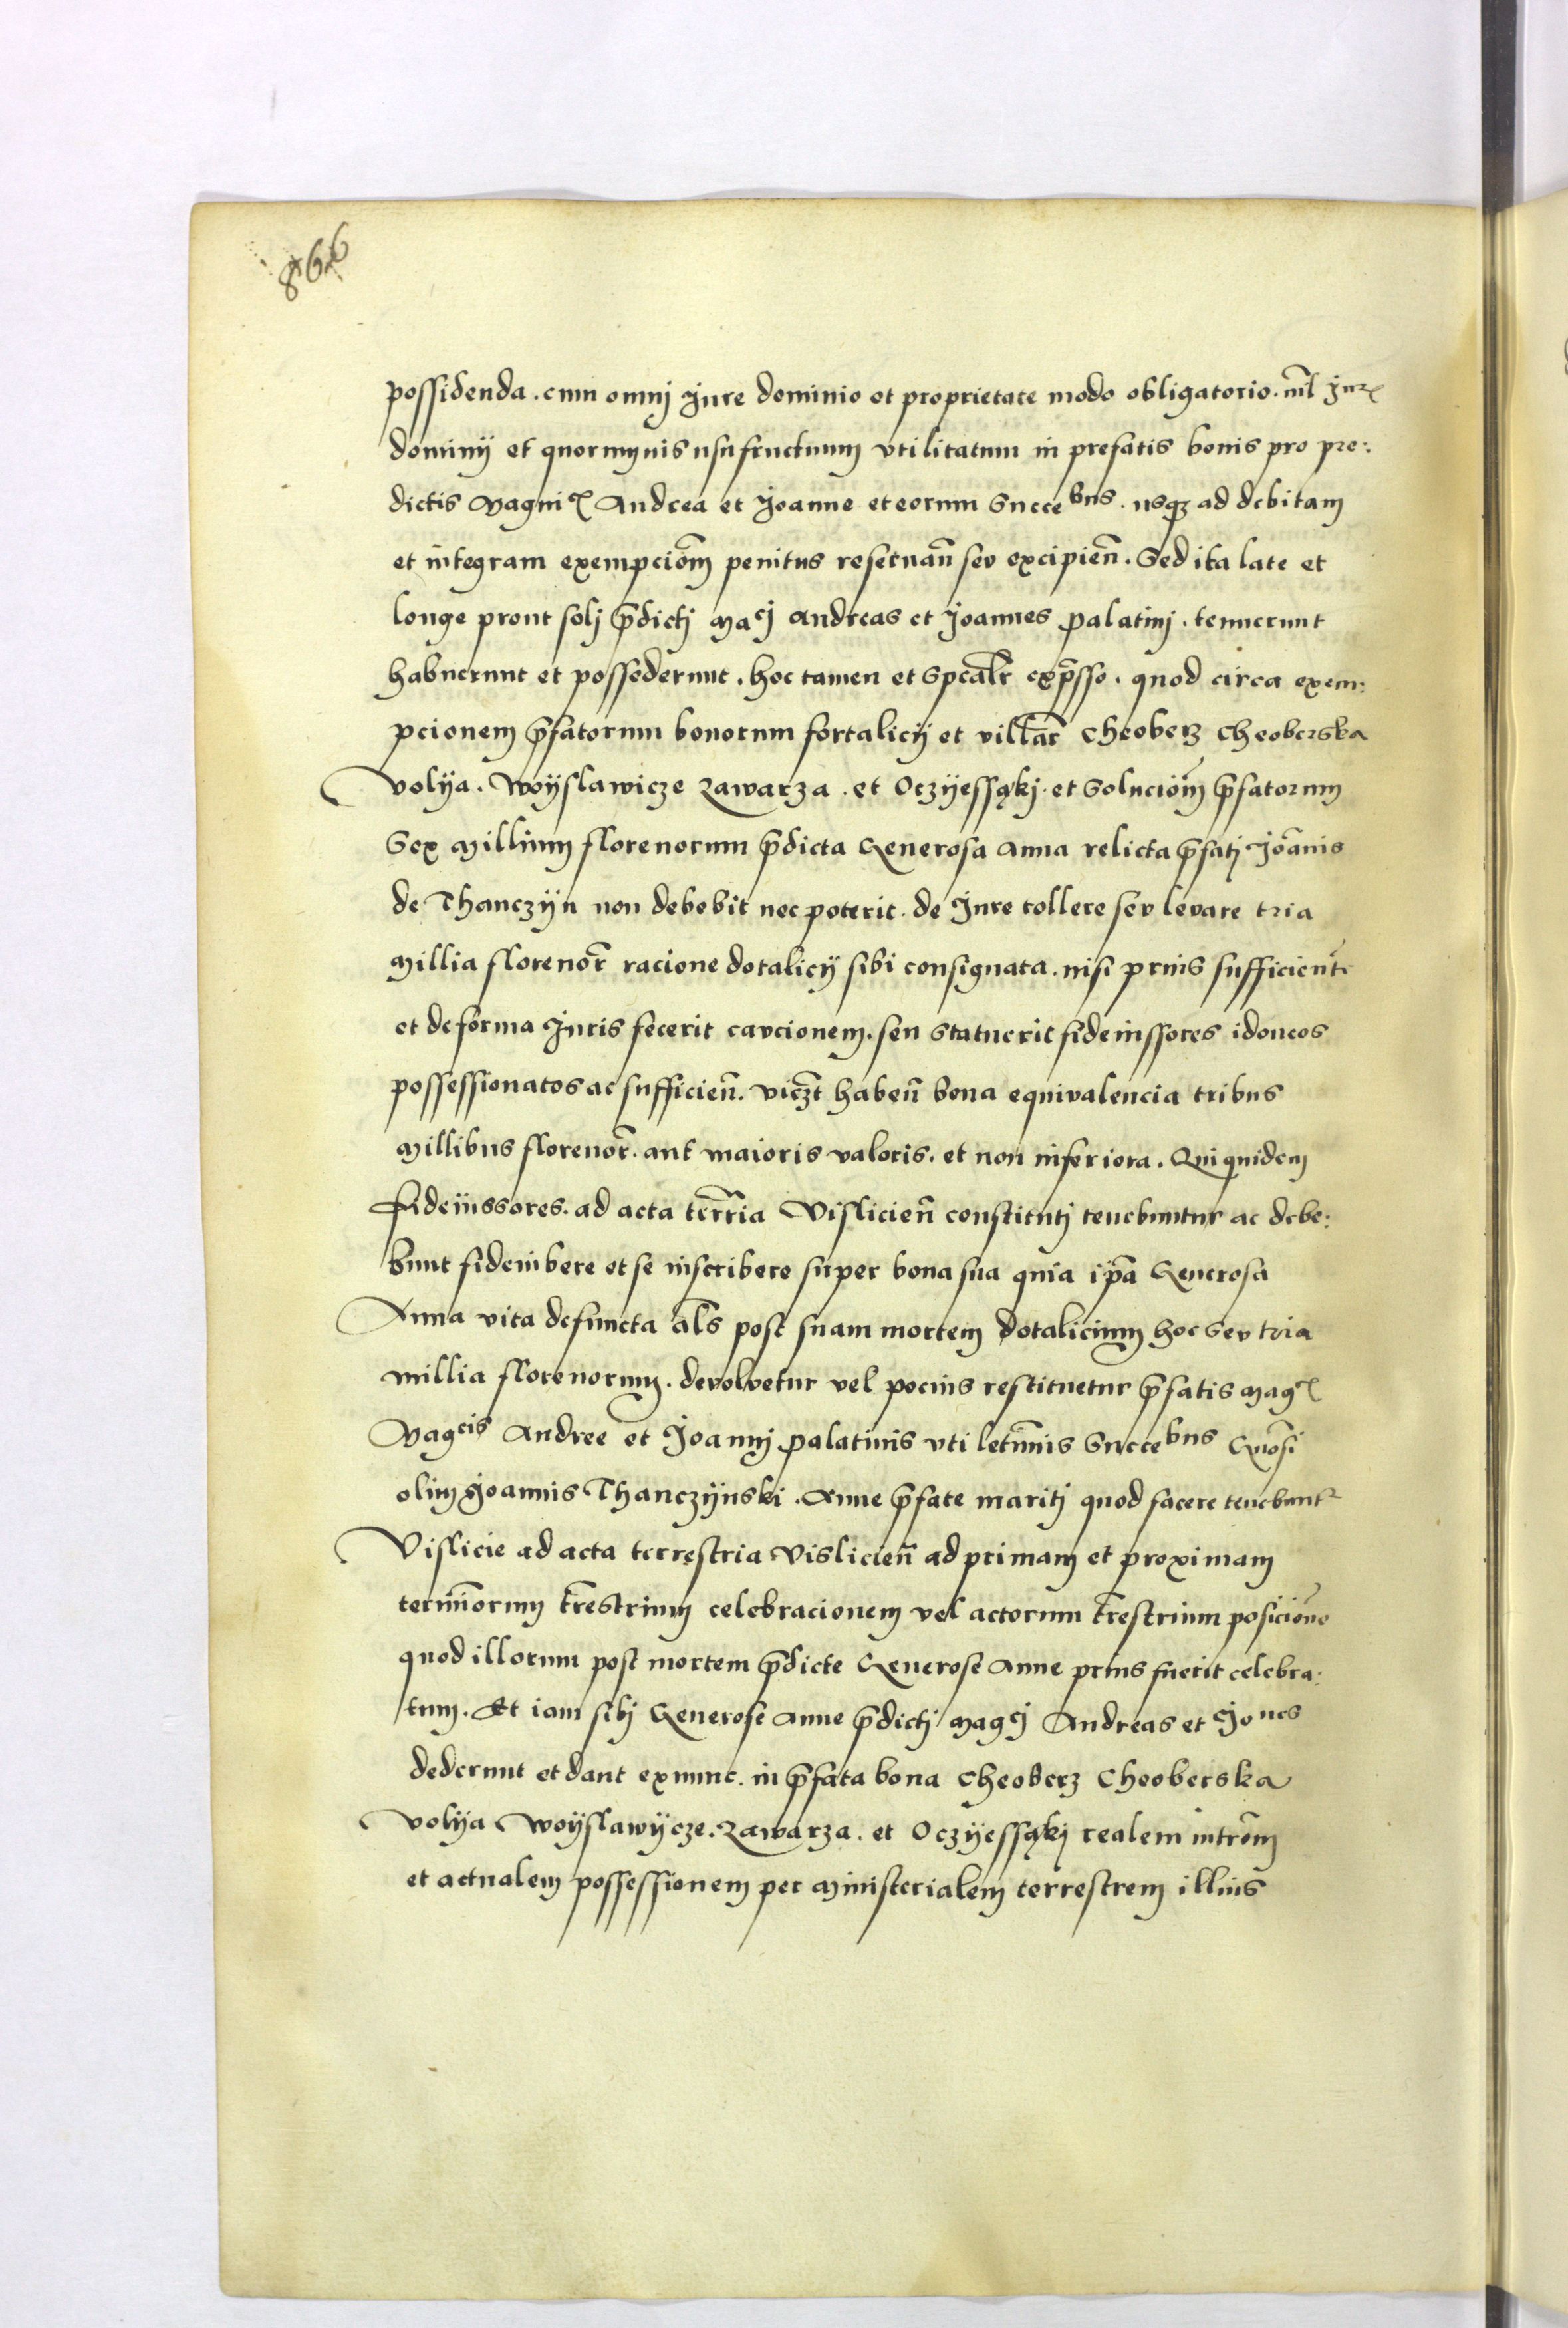 866
possidenda. cum omnj Jure dominio et proprietate modo obligatorio. nil Jur
dominij et quormnis usufructuum vtilitatum in prefatis bonis pro pre:
dictis Magni Andrea et Joanne et eorum Succebus. usqz ad debitam
et integram exempciom penitus reseruan seu excipien. Sed ita late et
longe prout solj pdictj Macj Andreas et Joannes palatinj. tenuerunt
habuerunt et possederunt. hoc tamen et Spcalr expsso. quod circa exem:
pcionem pfatorum bonorum fortalicij et villar Cheoberz Cheoberska
Volya. Woyslawicze Zawarza. et Oczyessąkj. et Soluciom pfatorum
Sex Millium florenorum pdicta Generosa Anna relicta pfatj Joanis
de Thanczyn non debebit nec poterit. de Jure tollere seu levare tria
Millia florenor racione dotalicij sibi consignata. nisi prius sufficient
et de forma Juris fecerit caucionem. seu Statuerit fideiussores idoneos
possessionatos ac sufficien. viczt haben bona equivalencia tribus
Millibus florenor. aut maioris valoris. et non inferiora. Qui quidem
Fideiussores. ad acta terrria Vislicien constitutj tenebuntur ac debe:
bunt fideiubere et se inscribere super bona sua quia ipa Generosa
Anna vita defuncta als post suam mortem dotalicium hoc seu tria
millia florenorum. devolvetur vel pocius restituetur pfatis mag
Magcis Andree et Joannj palatinis vti letimis Succebus Gnosi
olim Joannis Thanczynski. Anne pfate maritj quod facere tenebunt
Vislicie ad acta terrestria Vislicien ad primam et proximam
terminorum trestrium celebracionem vel actorum trestrium posicione
quod illorum post mortem pdicte Generose Anne prius fuerit celebra:
tum. Et iam sibj Generose Anne pdictj Magcj Andreas et Jones
dederunt et dant ex nunc. in pfata bona Cheoberz Cheoberska
Volya Woyslawycze. Zawarza. et Oczyessąkj realem introm
et actualem possessionem per Ministerialem terrestrem illius